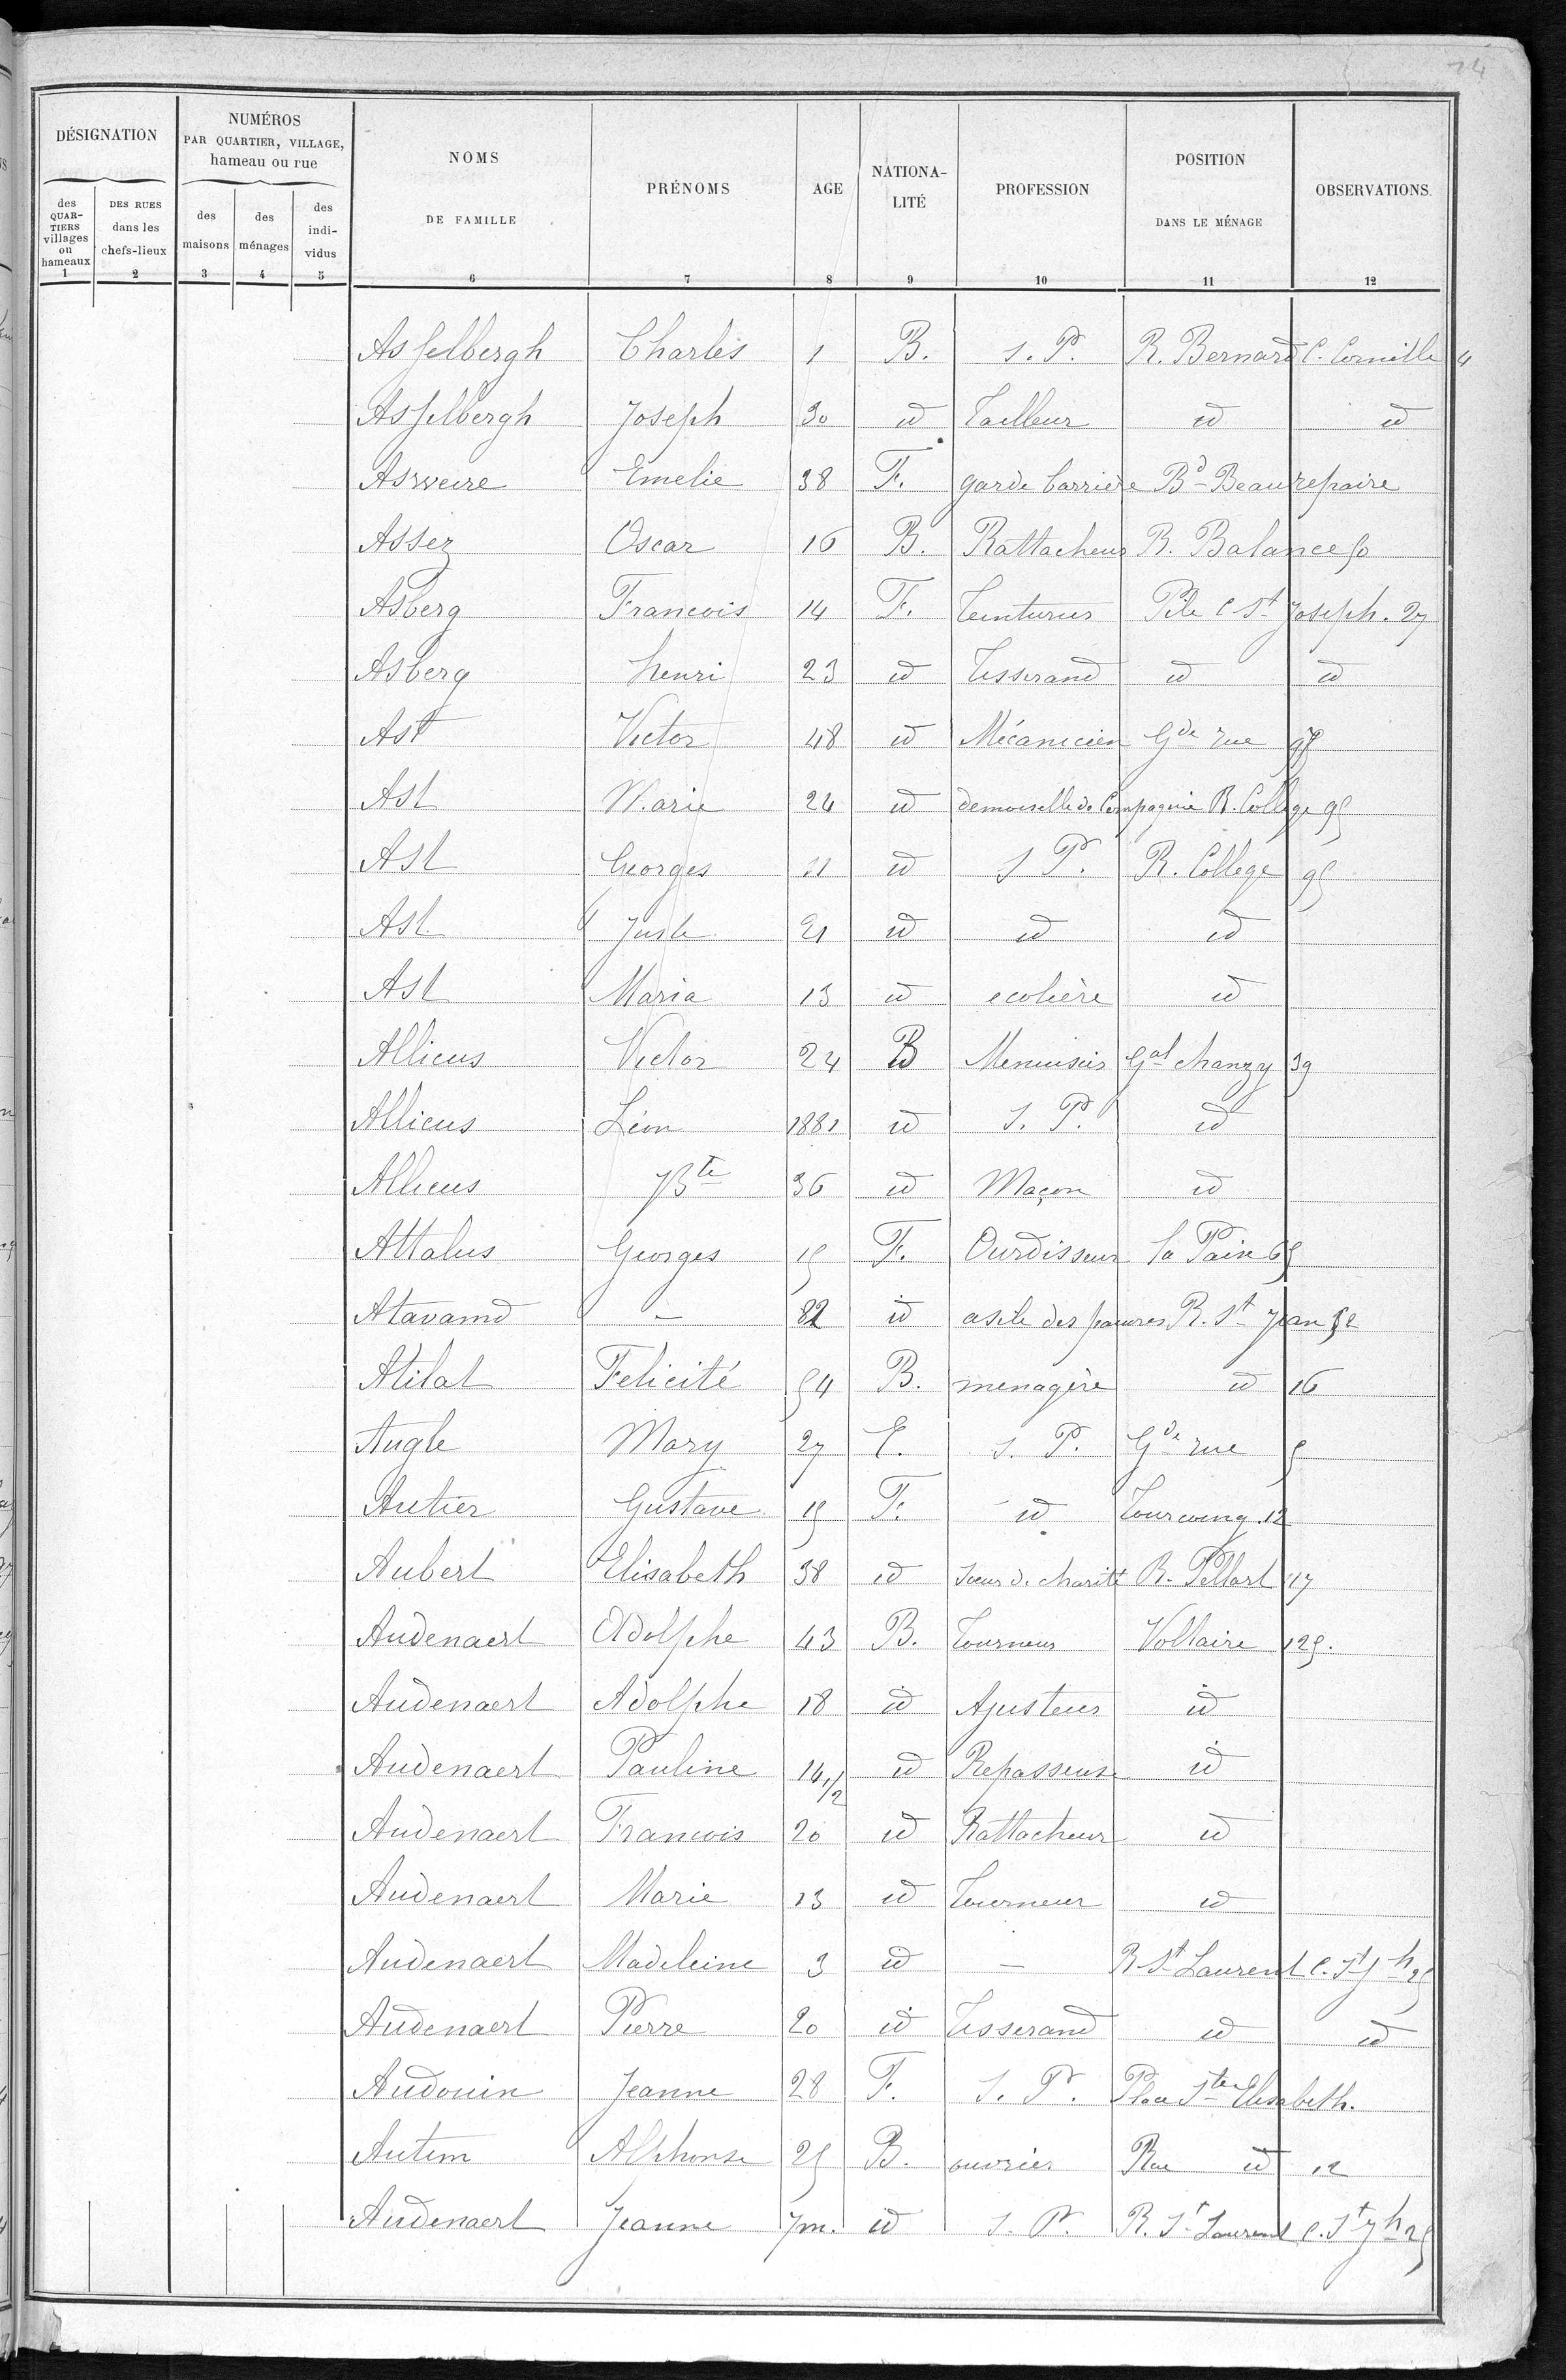 14
DÉSIGNATION
NUMÉROS
PAR QUARTIER, VILLAGE,
hameau ou rue
NOMS
DE FAMILLE
PRÉNOMS
AGE
NATIONA-
LITÉ
PROFESSION
POSITION
DANS LE MÉNAGE
OBSERVATIONS.
des
QUAR-
TIERS
villages
ou
hameaux
DES RUES
dans les
chefs-lieux
des
maisons
des
ménages
des
indi-
vidus
1 2 3 4 5 6 7 8 9 10 11 12
Asselbergh Charles 1 B. s. P. R. Bernard C. Cornille 4
Asselbergh Joseph 30 id Tailleur id id
Asweire Emelie 38 F. garde barrière Bd Beaurepaire
Assez Oscar 16 B. Rattacheur R. Balance 50
Asberg Francois 14 F. Teinturier Pile C St Joseph. 27
Asberg henri 23 id Tisserand id id
Ast Victor 48 id Mécanicien Gde rue
Ast Marie 24 id demoiselle de Compagnie R. College 95
Ast Georges 11 id s P. R. College 95
Ast Juste 21 id id id
Ast Maria 13 id ecolière id
Allieus Victor 24 B Menuisier Gal chanzy 39
Allieus Léon 1881 id s. P. id
Allieus JBte 36 id Maçon id
Attalus Georges 15 F. Ourdisseur la Paix 65
Atavamd - 82 id asile des pauvres R. St Jean 52
Atilat Felicité 54 B. menagère id 16
Augle Mary 27 E. s. P. Gde rue 5
Autier Gustave 15 F. id Tourcoing. 12
Aubert Elisabeth 38 id soeur de charité R. Pellart 117
Audenaert Adolphe 43 B. Tourneur Voltaire 125.
Audenaert Adolphe 18 id Ajusteur id
Audenaert Pauline 14 1/2 id Repasseuse id
Audenaert Francois 20 id Rattacheur id
Audenaert Marie 13 id Tourneur id
Audenaert Madeleine 3 id - R St Laurent C. St Jh 25
Audenaert Pierre 20 id Tisserand id id
Audouin Jeanne 28 F. s. P. Place Ste Elisabeth.
Autem Alphonse 25 B. ouvrier Rue id 12
Audenaert Jeanne 7m. id s. P. R. St Laurent C. St Jh 25